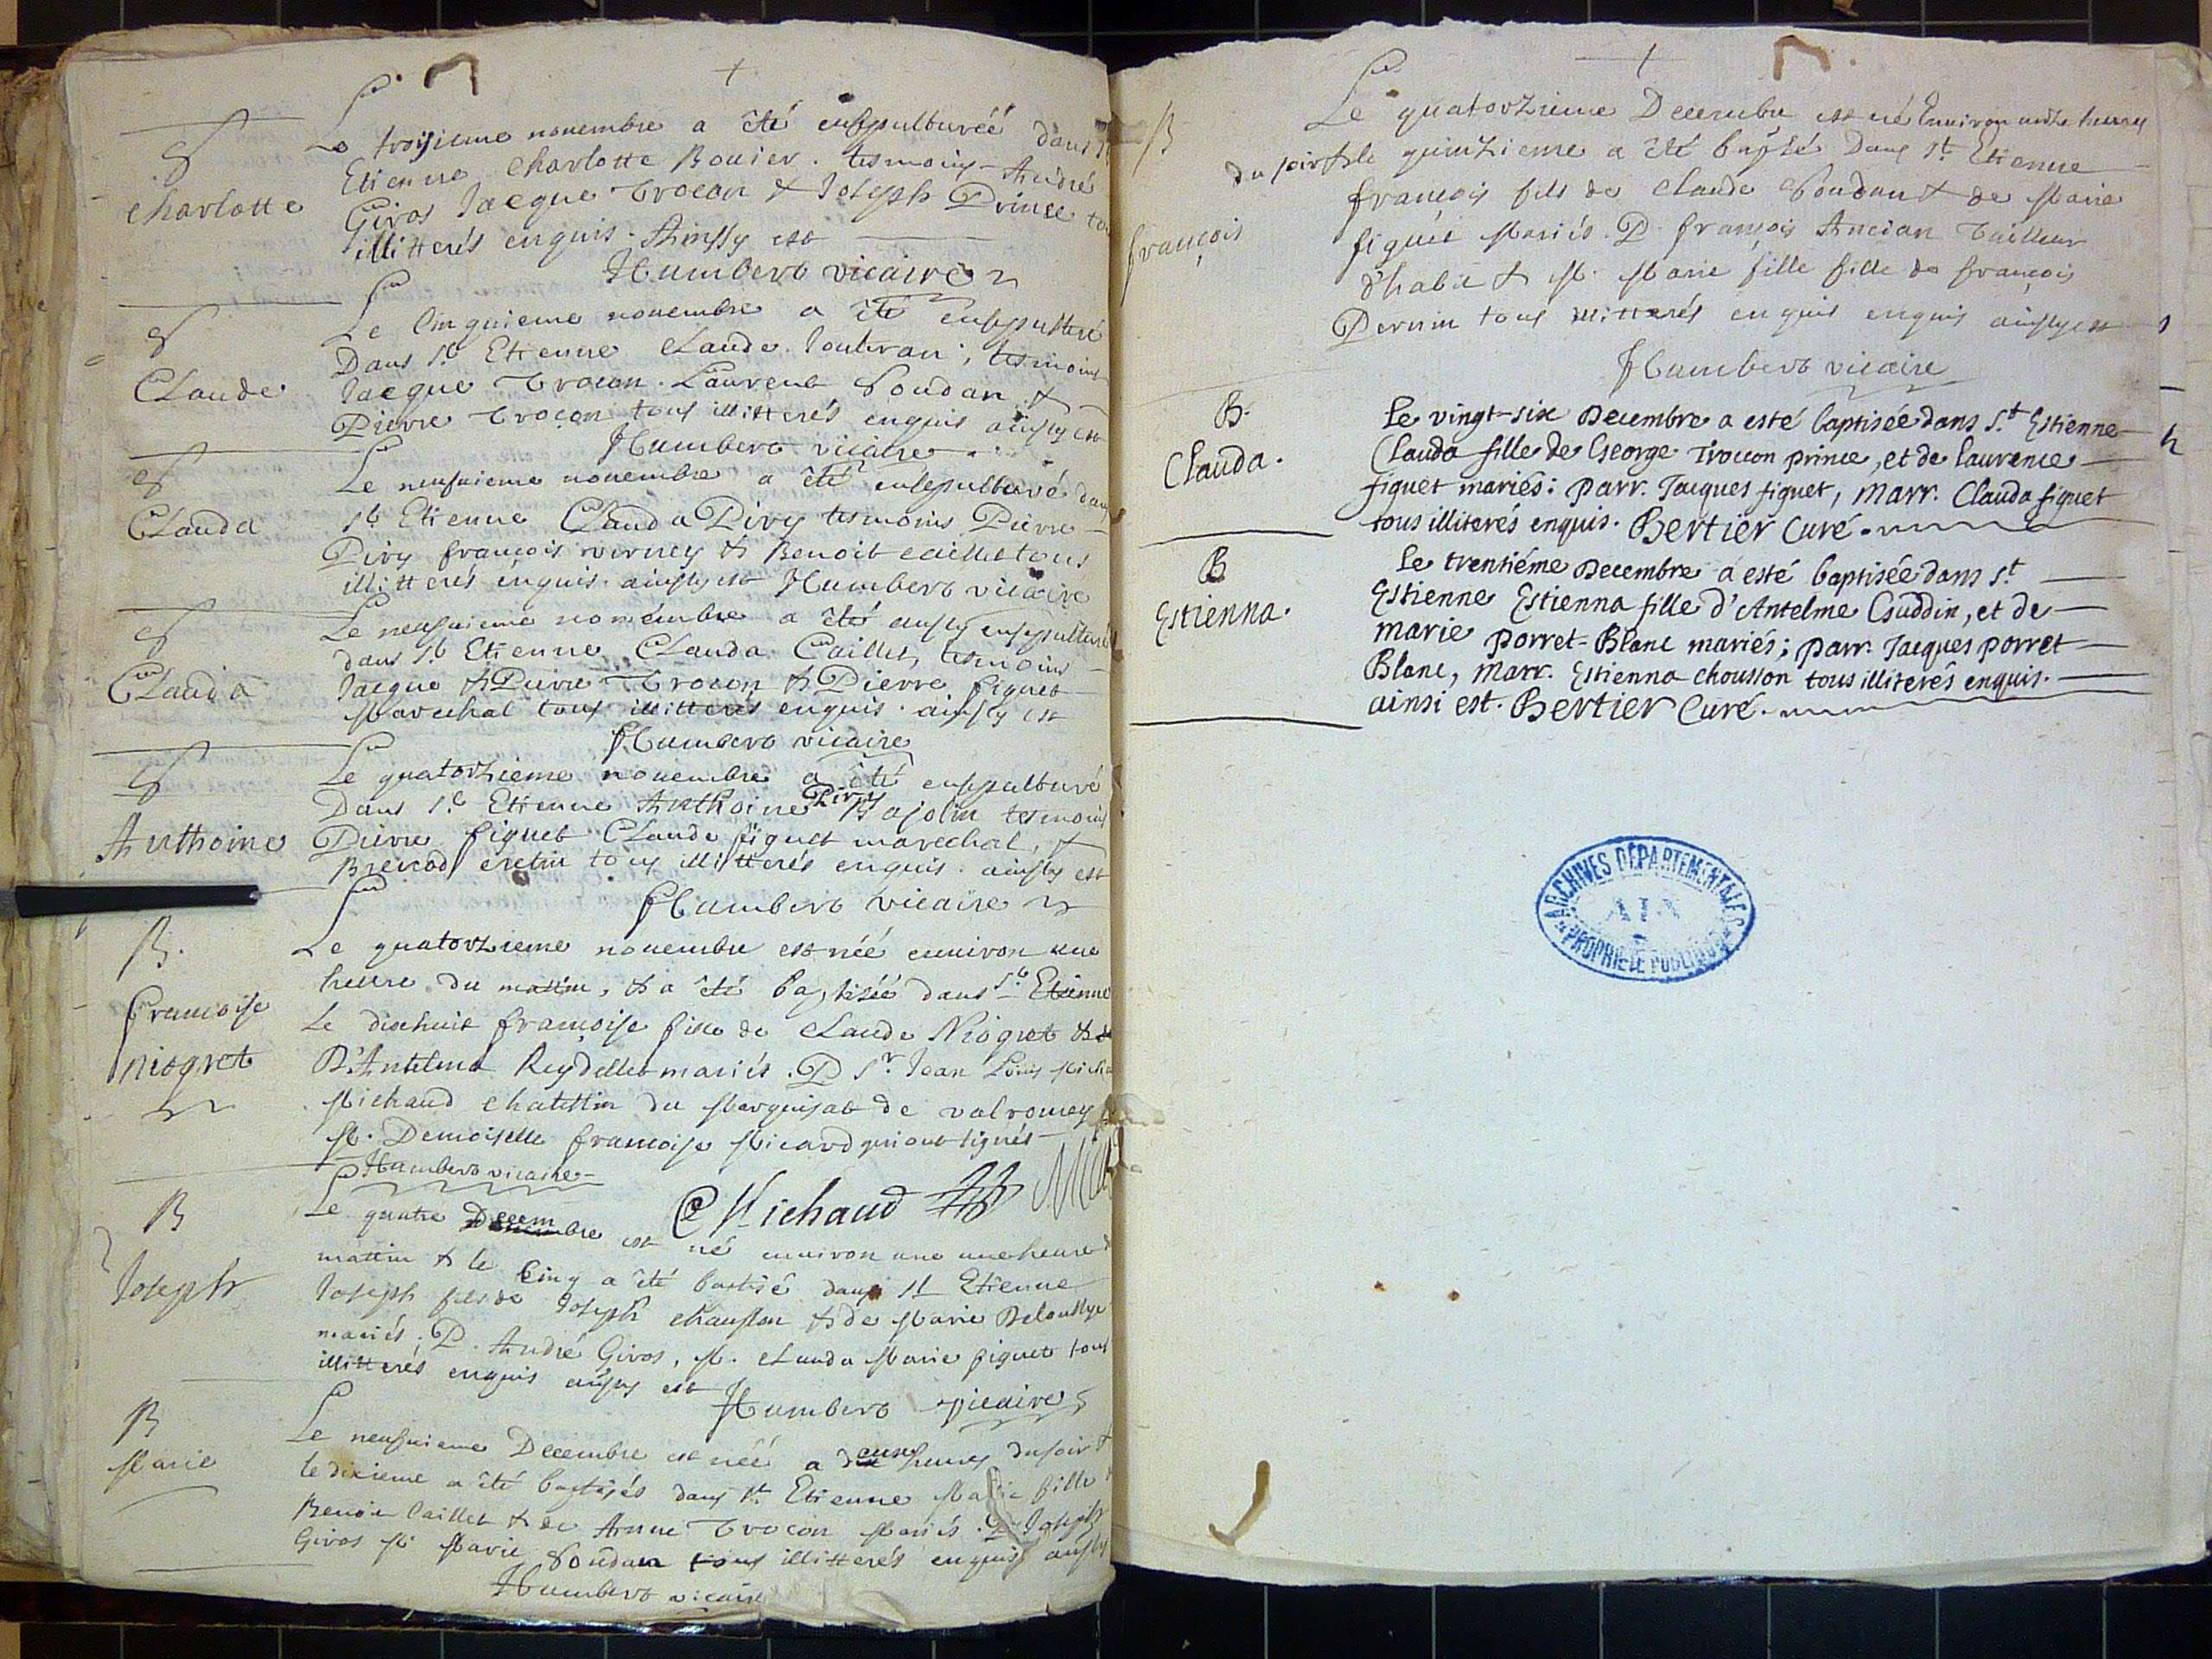 S
Charlotte
Le troisieme nouembre a été enseputurée dans St
Etienne Charlotte Bouier. tesmoins André
Giros Jacque Trocon & Joseph Prince tou
illitterés enquis. Ainssy est
Humbert vicaire
S
Claude
Le Cinquieme nouembre a été ensepulturé
Dans St Etienne Claude tesmoins
Jacque Trocon. Laurent Soudan &
Pierre Trocon tous illitterés enquis ainsy est
Humbert vicaire
S
Clauda
Le neufuieme nouembre a été ensepulturé dans
St Etienne Clauda Pivy tesmoins Pierre
Pivy françois verney & Benoit caillet tous
illitterés enquis. ainsy est Humbert vicaire
S
Clauda
Le neufuieme nouembre a été aussy ensepulturé
dans St Etienne Clauda Caillet, tesmoins
Jacque & Pierre Trocon & Pierre figuet
Marechal tous illitterés enquis. ainsy est
Humbert vicaire
S
Anthoine
Le quatorzieme nouembre a été ensepulturé
Pivy
Dans St Etienne Anthoine Bajolin tesmoins
Pierre figuet Claude figuet marechal, &
tous illitterés enquis. ainsy est
Humbert vicaire
B.
françoise
niogret
Le quatorzieme nouembre est née enuiron une
heure du mattin, & a été baptisée dans St Etienne
Le dixhuit françoise fille de Claude Niogret & de
D'Antelma Reydellet mariés. P Sr Jean Louis Micha
Michaud chatellin du Marquisat de valromey
M. Demoiselle françoise Micard qui ont signés
Humbert vicaire
Michaud
B
Joseph
Le quatre Decembre est né enuiron une une heure d
mattin & le Cinq a été baptisé dans St Etienne
Joseph fils de Joseph chausson & de Marie
mariés; P. André Giros, M. Clauda Marie figuet tous
illitterés enquis ainsy est
Humbert vicaire
B
Marie
Le neufuieme Decembre est née a deux heures du soir &
le dixieme a été baptisés dans St Etienne Marie fille
Benoit Caillet & de Anne Trocon Mariés. P Joseph
Giros M Marie Soudan tous illitterés enquis ainsy
Humbert vicaire
B
françois
Le quatorzieme Decembre est né Enuiron heures
du soir & le quinzieme a été bapté Dans St Etienne
françois fils de Claude Soudan & de Marie
figuet Mariés. P. françois Ancian Tailleur
d'habit & M. Marie fille fille de françois
Pernin tous illitterés enquis enquis ainsy est
Humbert vicaire
B.
Clauda.
Le vingt-six Decembre a esté baptisée dans St. Estienne
Clauda fille de George Troccon prince, et de laurence
figuet mariés: parr. Jacques figuet, marr. Clauda figuet
tous illiterés enquis. Bertier Curé.
B
Estienna.
Le trentiéme Decembre a esté baptisée dans St
Estienne Estienna fille d'Antelme Guddin, et de
marie porret-Blanc mariés; parr. Jacques porret
Blanc, marr. Estienna chousson tous illiterés enquis.
ainsi est. Bertier Curé.
ARCHIVES DÉPARTEMENTALES
AIN
PROPRIÉTÉ PUBLIQUE